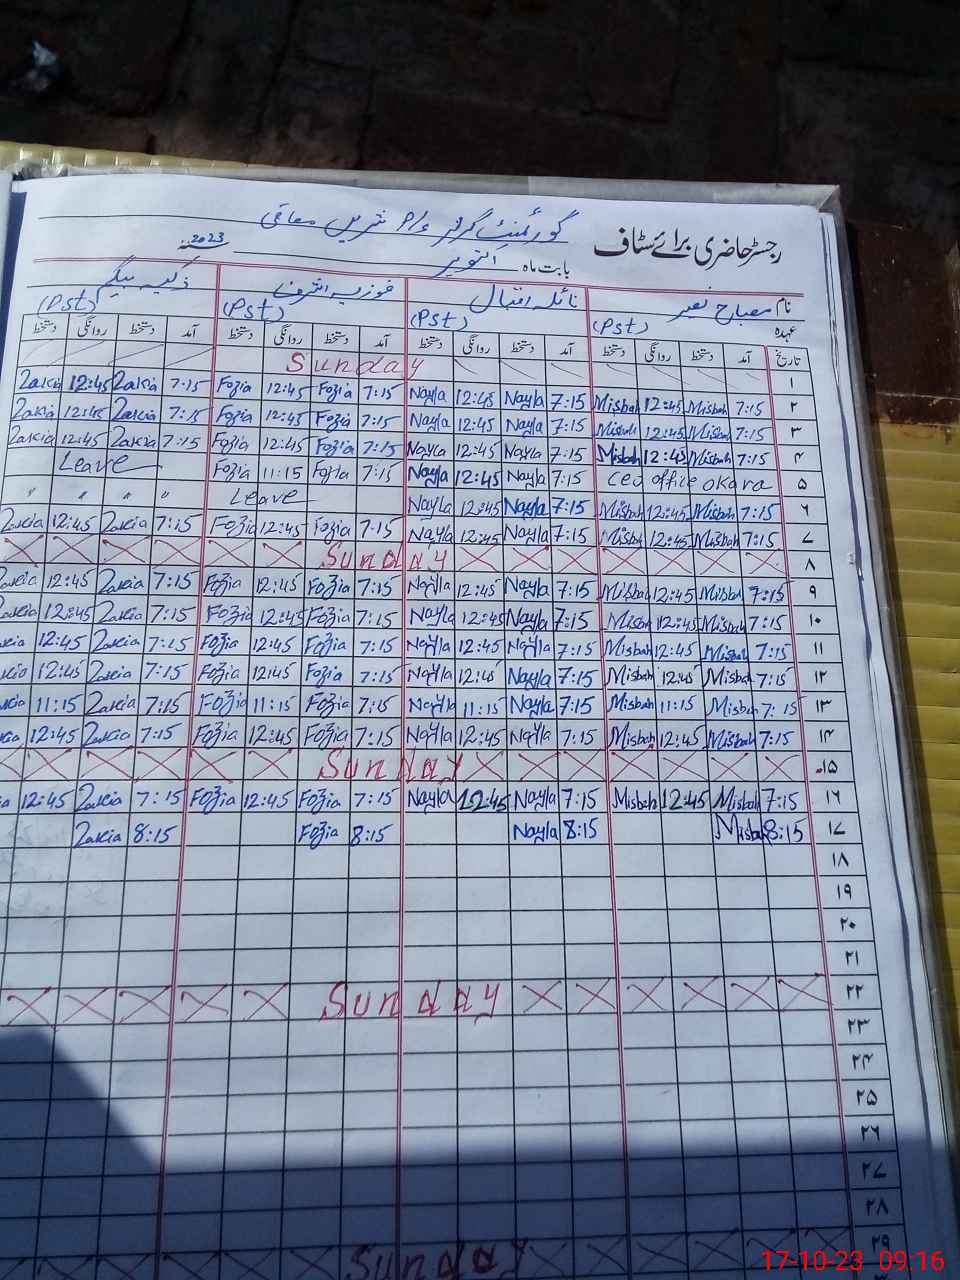 گورنمنٹ گرلز P/S شریں معافی
رجسٹر حاضری برائے سٹاف
بابت ماہ اکتوبر 2023 سنہ
نام مصباح نصر نائلہ اقبال فوزیہ اشرف ذکیہ بیگم
عہدہ (Pst) (Pst) (Pst) (Pst)
تاریخ آمد دستخط روانگی دستخط آمد دستخط روانگی دستخط آمد دستخط روانگی دستخط آمد دستخط روانگی دستخط
Sunday ۱
Zakia 12:45 Zakia 7:15 Fozia 12:45 Fozia 7:15 Nayla 12:45 Nayla 7:15 Misbah 12:45 Misbah 7:15 ۲
Zakia 12:45 Zakia 7:15 Fozia 12:45 Fozia 7:15 Nayla 12:45 Nayla 7:15 Misbah 12:45 Misbah 7:15 ۳
Zakia 12:45 Zakia 7:15 Fozia 12:45 Fozia 7:15 Nayla 12:45 Nayla 7:15 Misbah 12:45 Misbah 7:15 ۴
Leave Fozia 11:15 Fozia 7:15 Nayla 12:45 Nayla 7:15 CEO office okara ۵
" " " " Leave Nayla 12:45 Nayla 7:15 Misbah 12:45 Misbah 7:15 ۶
Zakia 12:45 Zakia 7:15 Fozia 12:45 Fozia 7:15 Nayla 12:45 Nayla 7:15 Misbah 12:45 Misbah 7:15 ۷
Sunday ۸
Zakia 12:45 Zakia 7:15 Fozia 12:45 Fozia 7:15 Nayla 12:45 Nayla 7:15 Misbah 12:45 Misbah 7:15 ۹
Zakia 12:45 Zakia 7:15 Fozia 12:45 Fozia 7:15 Nayla 12:45 Nayla 7:15 Misbah 12:45 Misbah 7:15 ۱۰
kia 12:45 Zakia 7:15 Fozia 12:45 Fozia 7:15 Nayla 12:45 Nayla 7:15 Misbah 12:45 Misbah 7:15 ۱۱
kia 12:45 Zakia 7:15 Fozia 12:45 Fozia 7:15 Nayla 12:45 Nayla 7:15 Misbah 12:45 Misbah 7:15 ۱۲
kia 11:15 Zakia 7:15 Fozia 11:15 Fozia 7:15 Nayla 11:15 Nayla 7:15 Misbah 11:15 Misbah 7:15 ۱۳
kia 12:45 Zakia 7:15 Fozia 12:45 Fozia 7:15 Nayla 12:45 Nayla 7:15 Misbah 12:45 Misbah 7:15 ۱۴
Sunday ۱۵
ia 12:45 Zakia 7:15 Fozia 12:45 Fozia 7:15 Nayla 12:45 Nayla 7:15 Misbah 12:45 Misbah 7:15 ۱۶
Zakia 8:15 Fozia 8:15 Nayla 8:15 Misbah 8:15 ۱۷
۱۸
۱۹
۲۰
۲۱
Sunday ۲۲
۲۳
۲۴
۲۵
۲۶
۲۷
۲۸
Sunday ۲۹
17-10-23 09:16